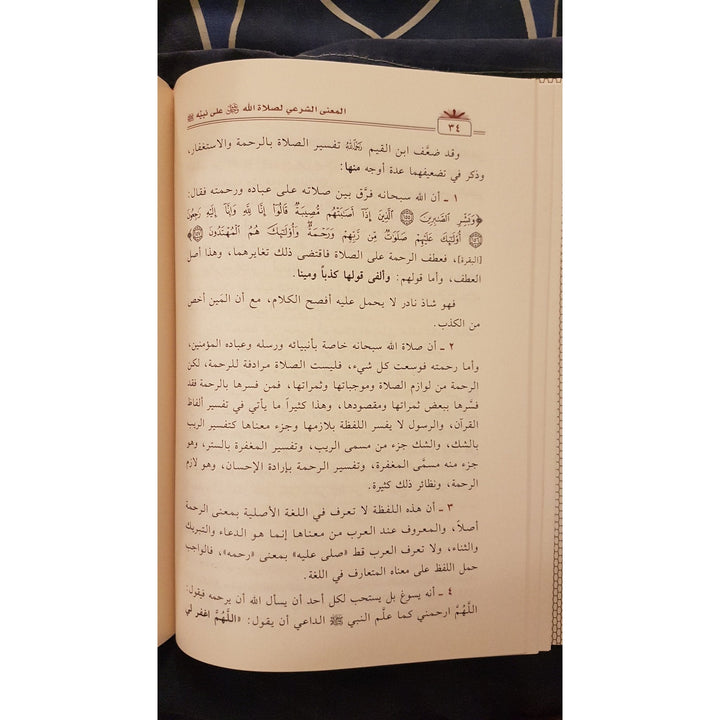 المعنى الشرعي لصلاة الله ﷻ على نبيّه ﷺ
٣٤
وقد ضعَّف ابن القيم رَحِمَهُ اللهُ تفسير الصلاة بالرحمة والاستغفار،
وذكر في تضعيفهما عدة أوجه منها:
١ ـ أن الله سبحانه فرَّق بين صلاته على عباده ورحمته فقال:
﴿وَبَشِّرِ ٱلصَّٰبِرِينَ ١٥٥ ٱلَّذِينَ إِذَآ أَصَٰبَتْهُم مُّصِيبَةٌ قَالُوٓا۟ إِنَّا لِلَّهِ وَإِنَّآ إِلَيْهِ رَٰجِعُونَ
١٥٦ أُو۟لَٰٓئِكَ عَلَيْهِمْ صَلَوَٰتٌ مِّن رَّبِّهِمْ وَرَحْمَةٌ وَأُو۟لَٰٓئِكَ هُمُ ٱلْمُهْتَدُونَ ١٥٧﴾
[البقرة]، فعطف الرحمة على الصلاة فاقتضى ذلك تغايرهما، وهذا أصل
العطف، وأما قولهم: وألفى قولها كذباً ومينا.
فهو شاذ نادر لا يحمل عليه أفصح الكلام، مع أن المَين أخص
من الكذب.
٢ ـ أن صلاة الله سبحانه خاصة بأنبيائه ورسله وعباده المؤمنين،
وأما رحمته فوسعت كل شيء، فليست الصلاة مرادفة للرحمة، لكن
الرحمة من لوازم الصلاة وموجباتها وثمراتها، فمن فسرها بالرحمة فقد
فسَّرها ببعض ثمراتها ومقصودها، وهذا كثيراً ما يأتي في تفسير ألفاظ
القرآن، والرسول لا يفسر اللفظة بلازمها وجزء معناها كتفسير الريب
بالشك، والشك جزء من مسمى الريب، وتفسير المغفرة بالستر، وهو
جزء منه مسمَّى المغفرة، وتفسير الرحمة بإرادة الإحسان، وهو لازم
الرحمة، ونظائر ذلك كثيرة.
٣ ـ أن هذه اللفظة لا تعرف في اللغة الأصلية بمعنى الرحمة
أصلاً، والمعروف عند العرب من معناها إنما هو الدعاء والتبريك
والثناء، ولا تعرف العرب قط «صلى عليه» بمعنى «رحمه»، فالواجب
حمل اللفظ على معناه المتعارف في اللغة.
٤ ـ أنه يسوغ بل يستحب لكل أحد أن يسأل الله أن يرحمه فيقول:
اللَّهُمَّ ارحمني كما علَّم النبي ﷺ الداعي أن يقول: «اللَّهُمَّ إغفر لي